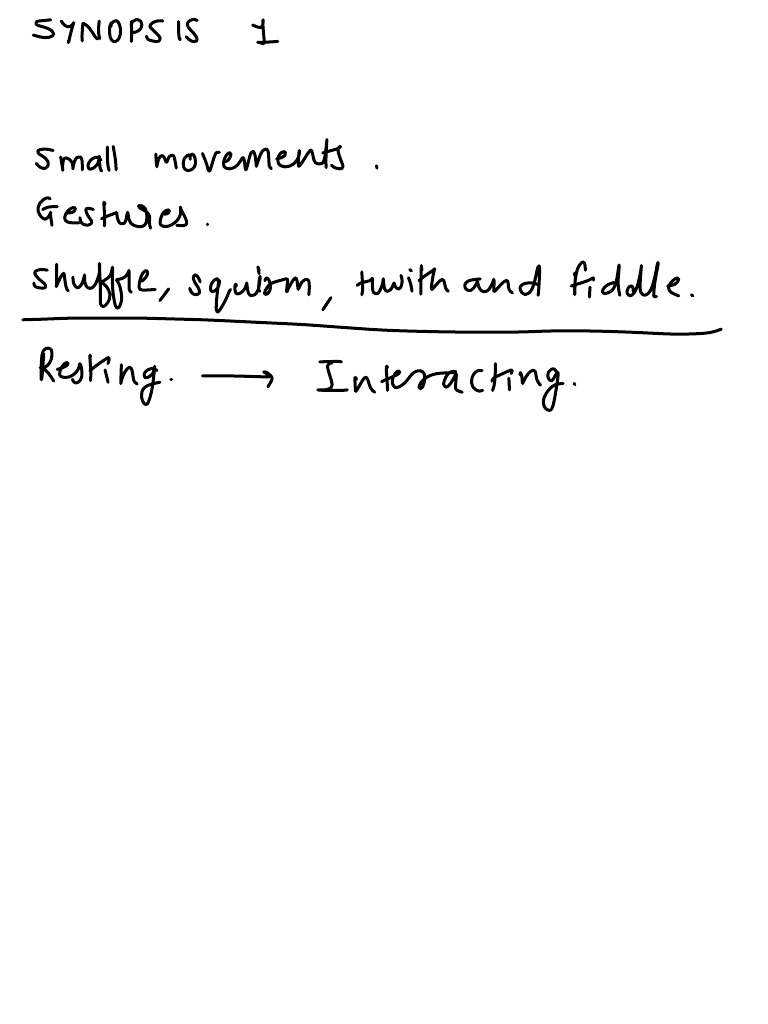 SYNOPSIS 1
Small movements.
Gestures.
Shuffle, squirm, twith and fiddle.
Resting. → Interacting.